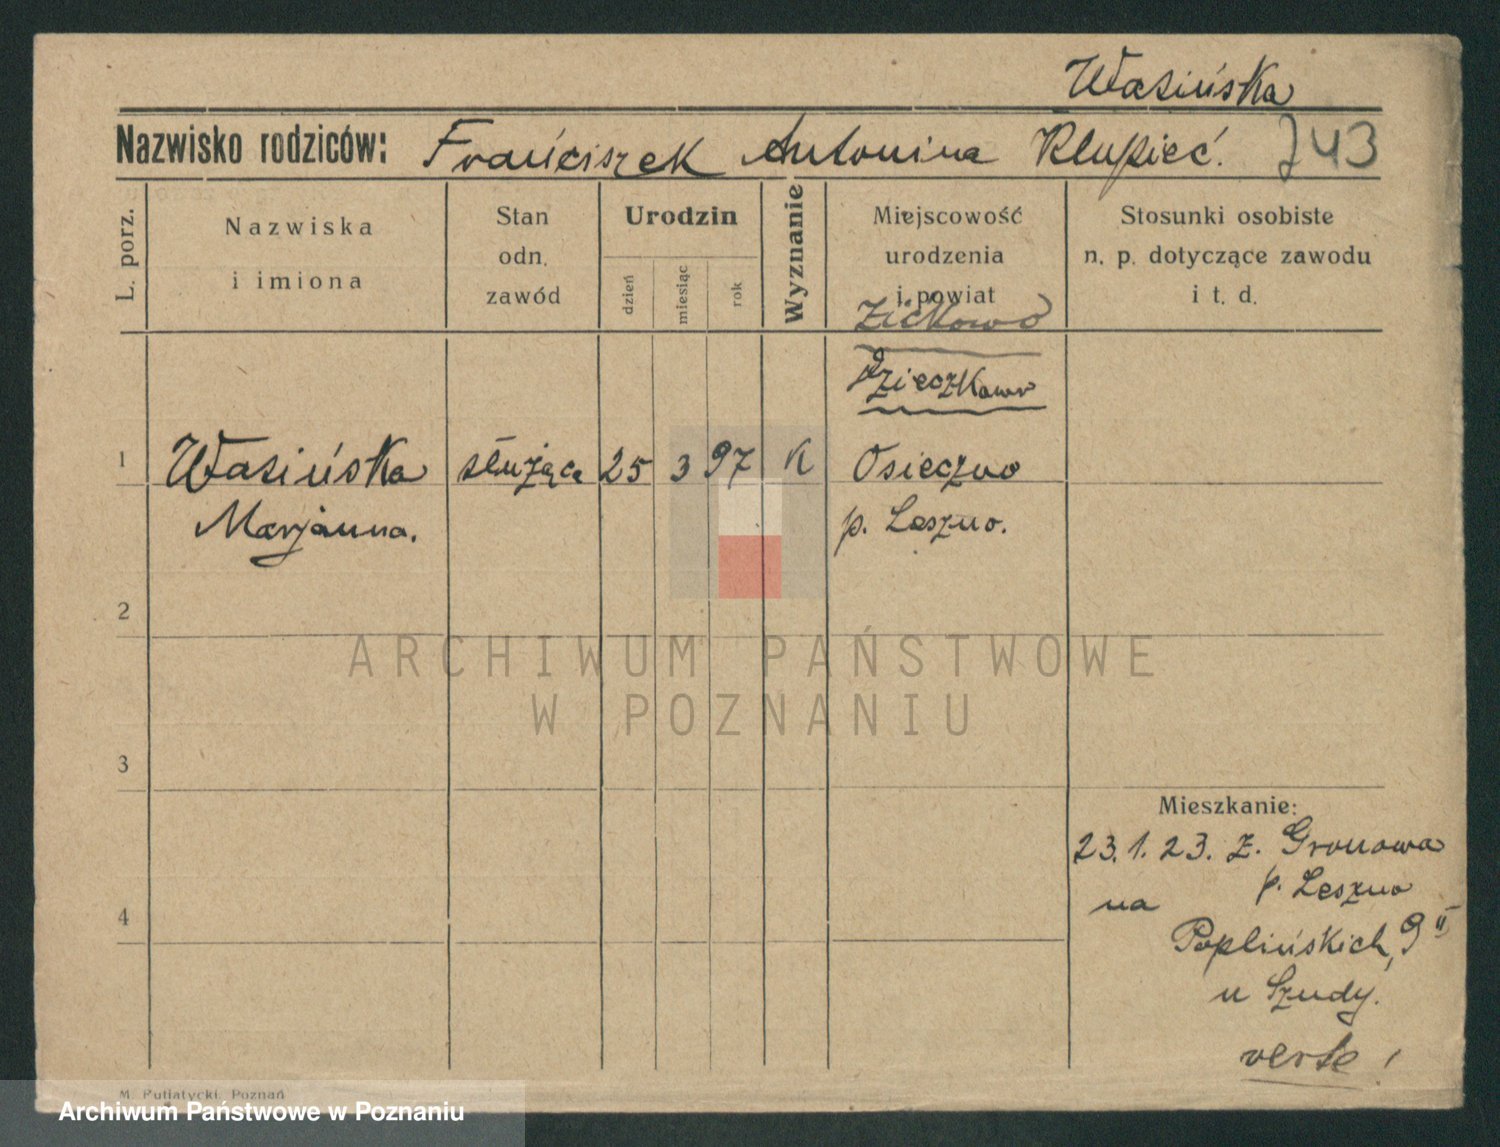 Wasińska
Nazwisko rodziców: Franciszek Antonina Klupieć. 743
L. porz.
Nazwiska
i imiona
Stan
odn.
zawód
Urodzin
dzień
miesiąc
rok
Wyznanie
Miejscowość
urodzenia
i powiat
Stosunki osobiste
n. p. dotyczące zawodu
i t. d.
Zićkowo
Dzieczkowo
1 Wasińska służąca 25 3 97 K Osieczno
Marjanna. p. Leszno.
2
ARCHIWUM PAŃSTWOWE
W POZNANIU
3
Mieszkanie:
23.1.23. z. Gronowa
p. Leszno
na
4
Poplińskich, 9 II
u Szudy.
verte!
M. Putiatycki, Poznań
Archiwum Państwowe w Poznaniu